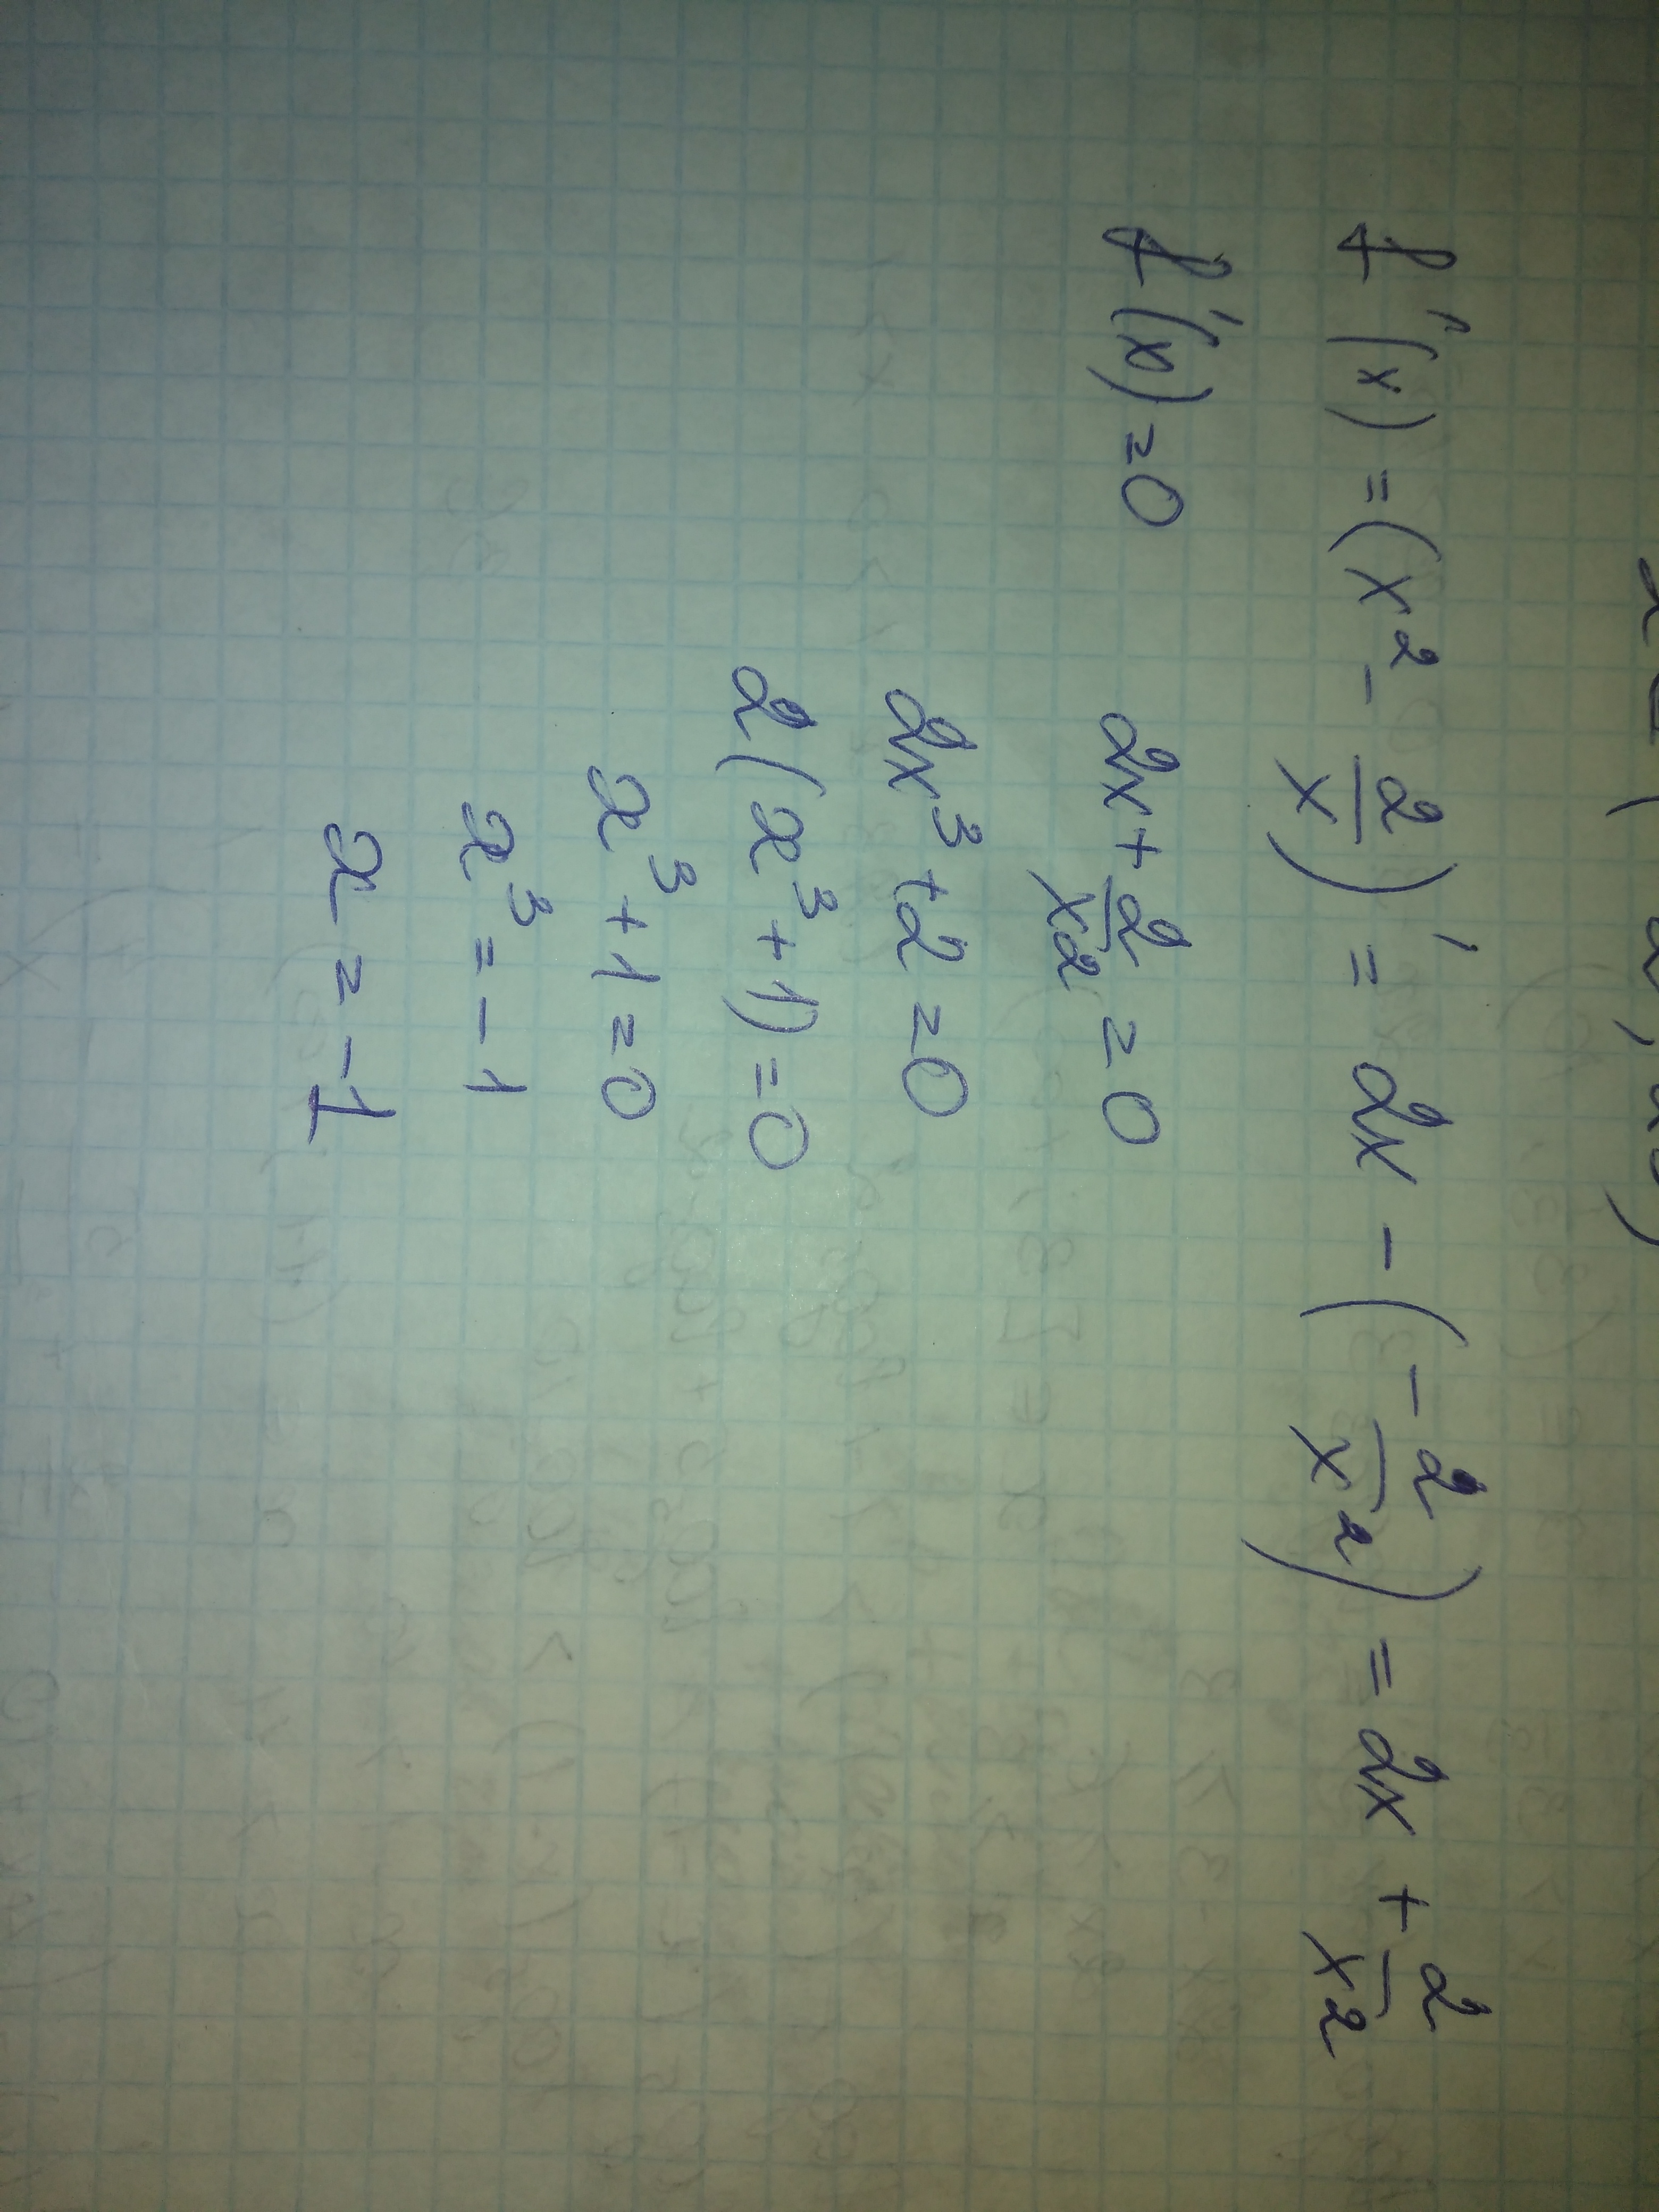 f'(x) = (x² - 2/x)' = 2x - (-2/x²) = 2x + 2/x²
f'(x) = 0 2x + 2/x² = 0
2x³ + 2 = 0
2(x³ + 1) = 0
x³ + 1 = 0
x³ = -1
x = -1